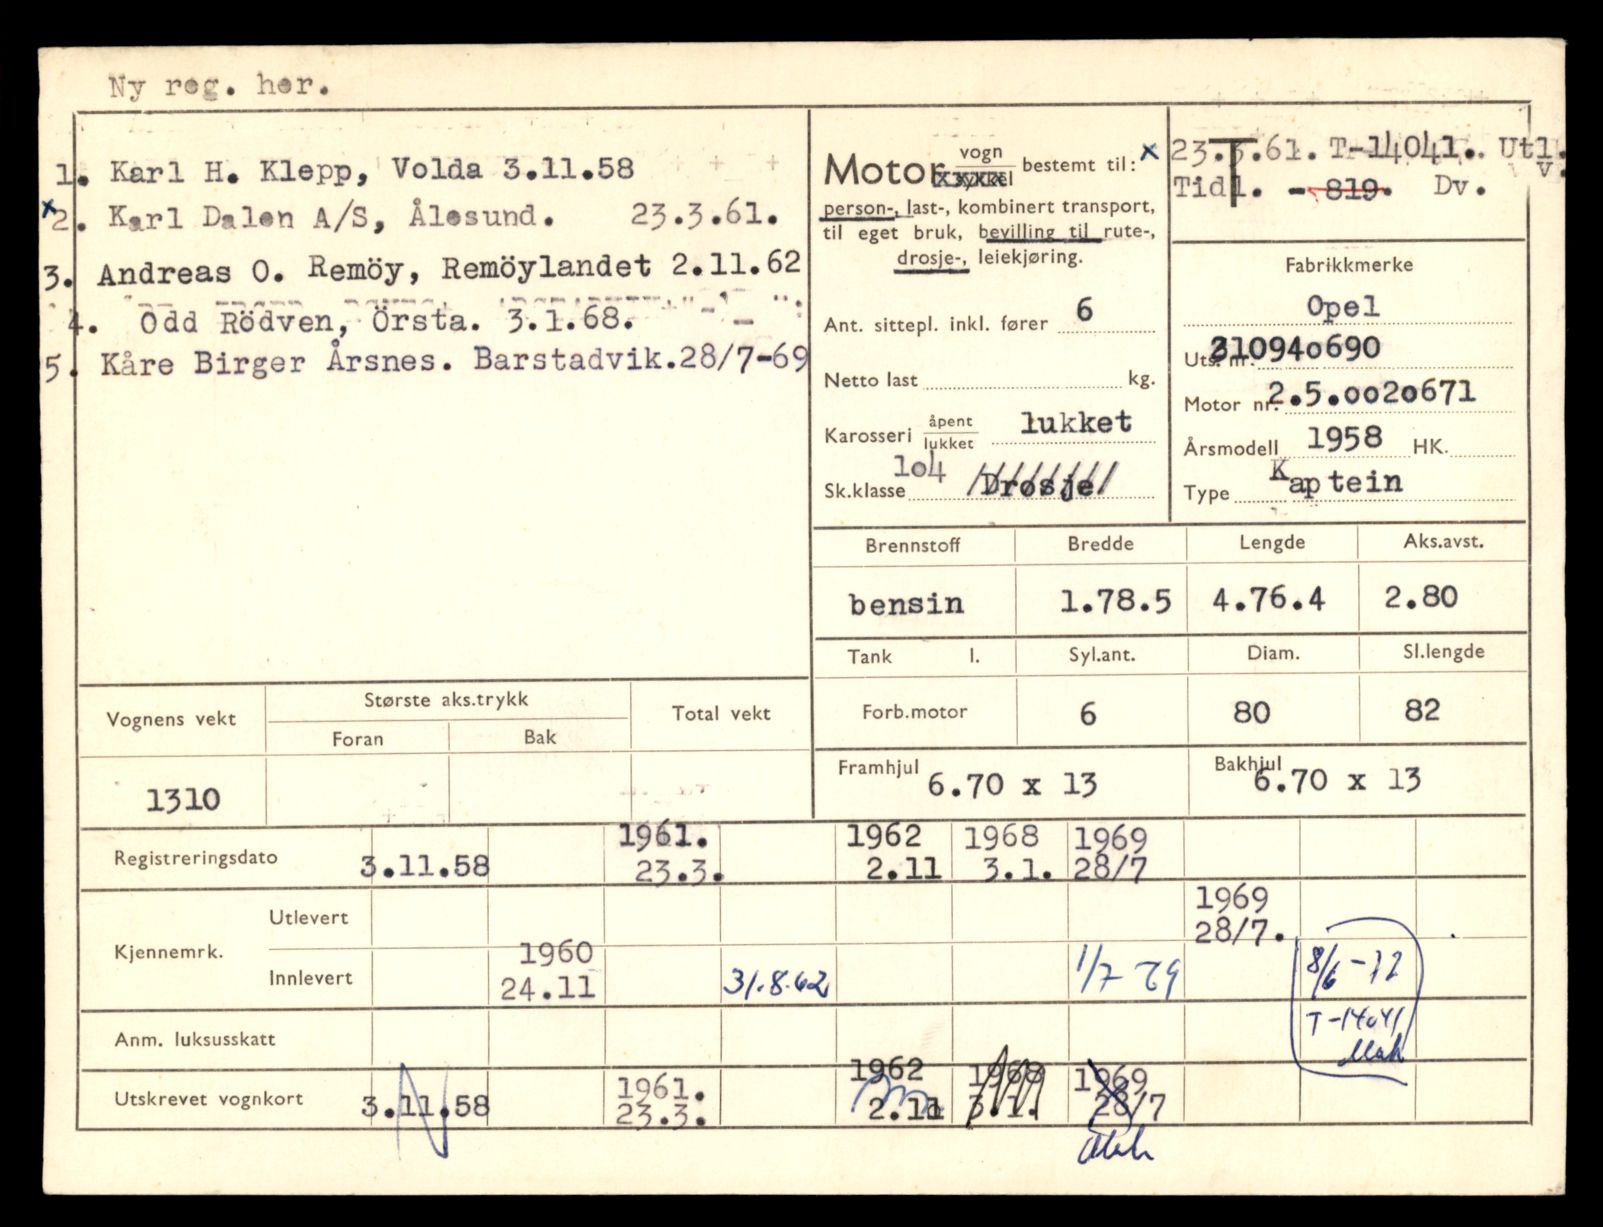 Ny reg. her.
1. Karl H. Klepp, Volda 3.11.58
x2. Karl Dalen A/S, Ålesund. 23.3.61.
3. Andreas O. Remöy, Remöylandet 2.11.62
4. Odd Rödven, Örsta. 3.1.68.
5. Kåre Birger Årsnes. Barstadvik.28/7-69
Motor vogn bestemt til:
person-, last-, kombinert transport,
til eget bruk, bevilling til rute-,
drosje-, leiekjøring.
Ant. sittepl. inkl. fører 6
Netto last kg.
Karosseri åpent
lukket lukket
104
Sk.klasse Drosje
x 23.3.61. T-14041. Utl.
T
Tidl. - 819. Dv. v.
Fabrikkmerke
Opel
Uts. nr. 310940690
Motor nr. 2.5.0020671
Årsmodell 1958 HK.
Type Kaptein
Brennstoff Bredde Lengde Aks.avst.
bensin 1.78.5 4.76.4 2.80
Tank l. Syl.ant. Diam. Sl.lengde
Forb.motor 6 80 82
Framhjul 6.70 x 13 Bakhjul 6.70 x 13
Vognens vekt Største aks.trykk Total vekt
Foran Bak
1310
1961. 1962 1968 1969
Registreringsdato 3.11.58 23.3. 2.11 3.1. 28/7
Kjennemrk. Utlevert 1969
28/7.
Innlevert 1960
24.11 31.8.62 1/7 69 8/6-72
T-14041
Anm. luksusskatt
1961. 1962 1968 1969
Utskrevet vognkort 3.11.58 23.3. 2.11 3.1. 28/7